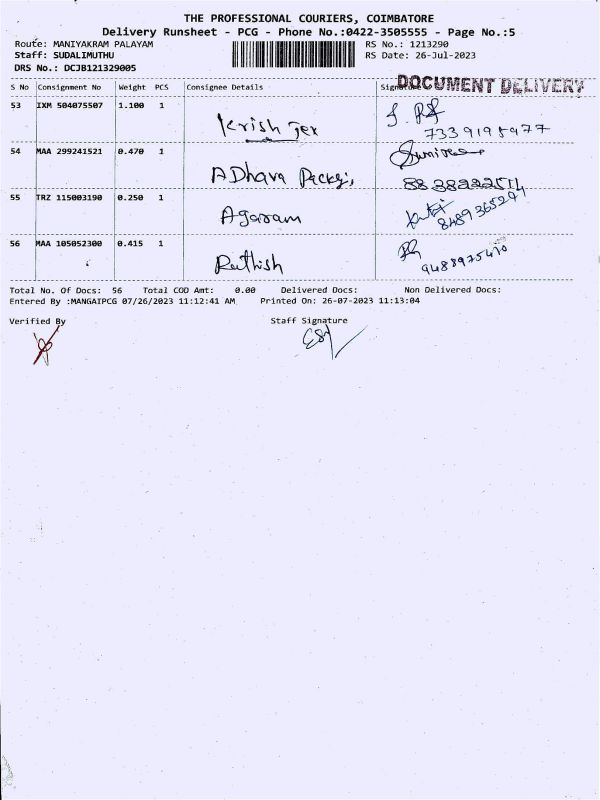 THE PROFESSIONAL COURIERS, COIMBATORE
Delivery Runsheet - PCG - Phone No.:0422-3505555 - Page No.:5
Route: MANIYAKRAM PALAYAM RS No.: 1213290
Staff: SUDALIMUTHU RS Date: 26-Jul-2023
DRS No.: DCJB121329005
DOCUMENT DELIVERY
S No Consignment No Weight PCS Consignee Details Signature
53 IXM 504075507 1.100 1
Krish Tex
7339195977
54 MAA 299241521 0.470 1
ADhava
55 TRZ 115003190 0.250 1
Agaram 8489365294
56 MAA 105052300 0.415 1
Rathish
Total No. Of Docs: 56 Total COD Amt: 0.00 Delivered Docs: Non Delivered Docs:
Entered By :MANGAIPCG 07/26/2023 11:12:41 AM Printed On: 26-07-2023 11:13:04
Verified By Staff Signature